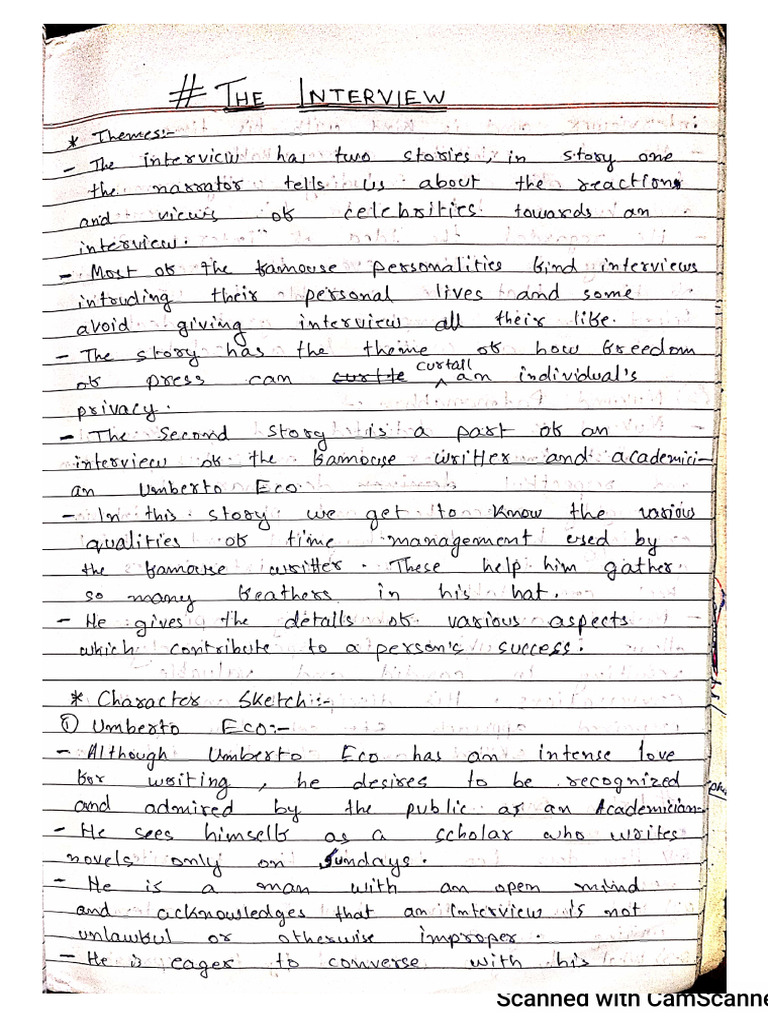 # THE INTERVIEW
* Themes:-
- The interview has two stories, in story one
the narrator tells us about the reactions
and views of celebrities towards an
interview.
- Most of the famouse personalities find interviews
intruding their personal lives and some
avoid giving interview all their life.
- The story has the theme of how freedom
of press can curtail an individual's
privacy.
- The Second Story is a part of an
interview of the famouse writter and academici-
an Umberto Eco.
- In this story we get to know the various
qualities of time management used by
the famouse writter. These help him gather
so many feathers in his hat.
- He gives the details of various aspects
which contribute to a person's success.
* Character Sketch:-
① Umberto Eco:-
- Although Umberto Eco has an intense love
for writing, he desires to be recognized
and admired by the public as an Academician.
- He sees himself as a scholar who writes
novels only on Sundays.
- He is a man with an open mind
and acknowledges that an interview is not
unlawful or otherwise improper.
- He is eager to converse with his
Scanned with CamScanne